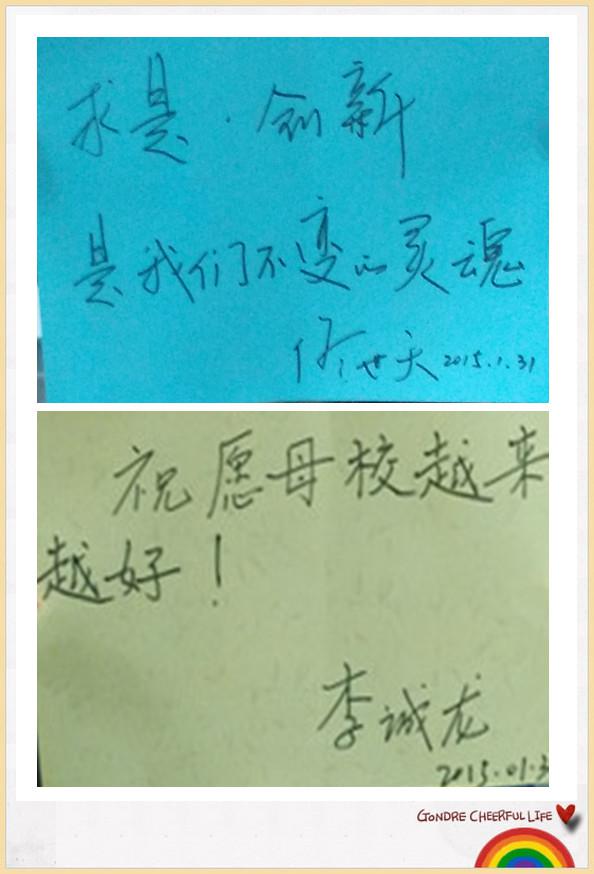 求是·创新
是我们不变的灵魂
2015.1.31
祝愿母校越来
越好！
李诚龙
2015.01.3
GONDRE CHEERFUL LIFE